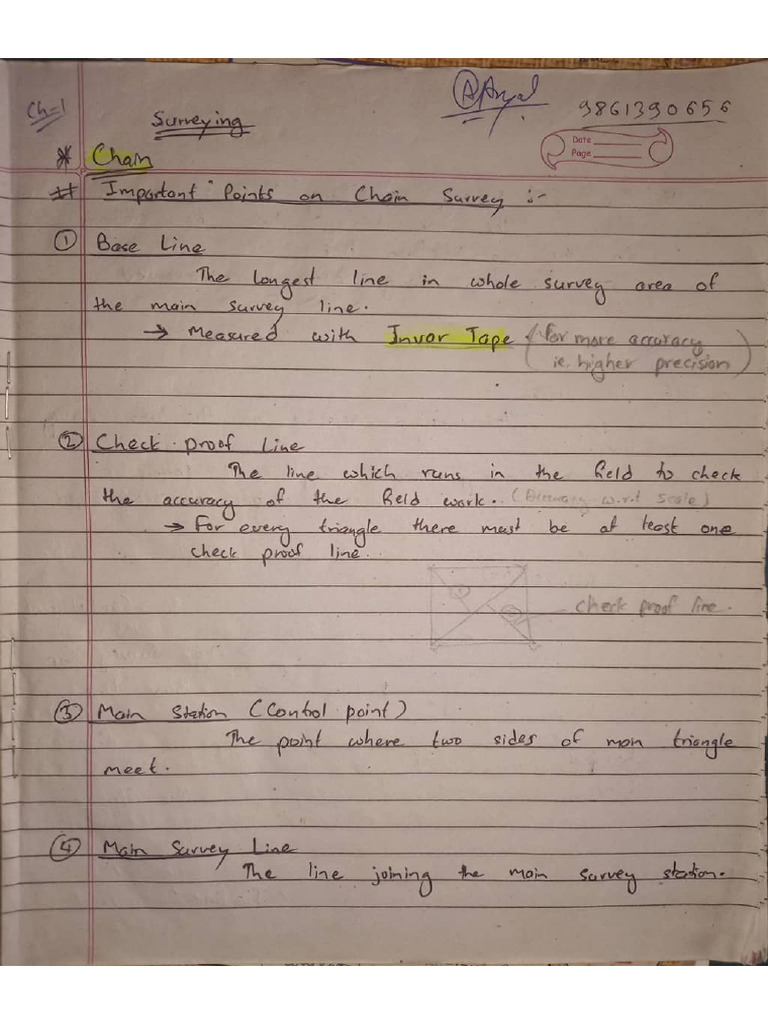 Ch-1
Surveying
A.Aryal
9861390656
Date
Page
* Chain
# Important Points on Chain Survey :-
① Base Line
The longest line in whole survey area of
the main survey line.
→ Measured with Invar Tape (For more accuracy
ie. higher precision)
② Check proof Line
The line which runs in the field to check
the accuracy of the field work. (Accuracy w.r.t scale)
→ For every triangle there must be at least one
check proof line.
① ②
check proof line.
③ Main Station (Control point)
The point where two sides of main triangle
meet.
④ Main Survey Line
The line joining the main survey station.